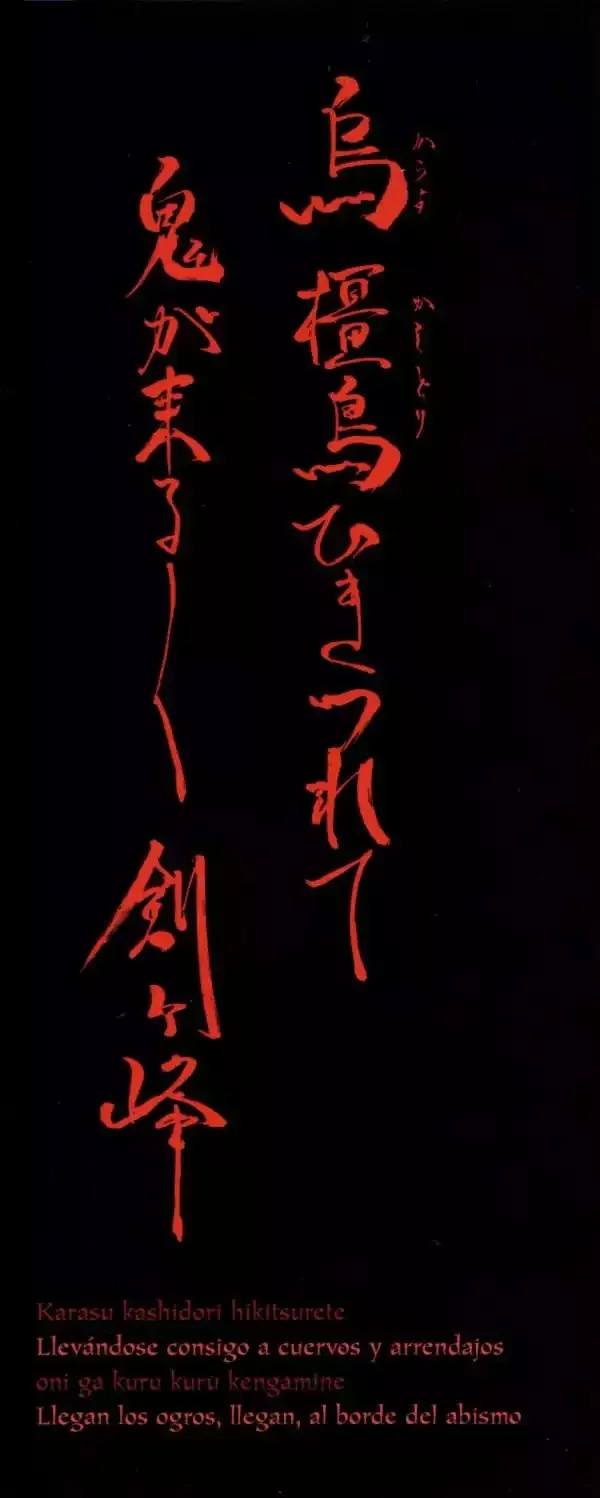 烏 橿鳥ひきつれて
からす かしどり
鬼が来る〱 剣ヶ峰
Karasu kashidori hikitsurete
Llevándose consigo a cuervos y arrendajos
oni ga kuru kuru kengamine
Llegan los ogros, llegan, al borde del abismo